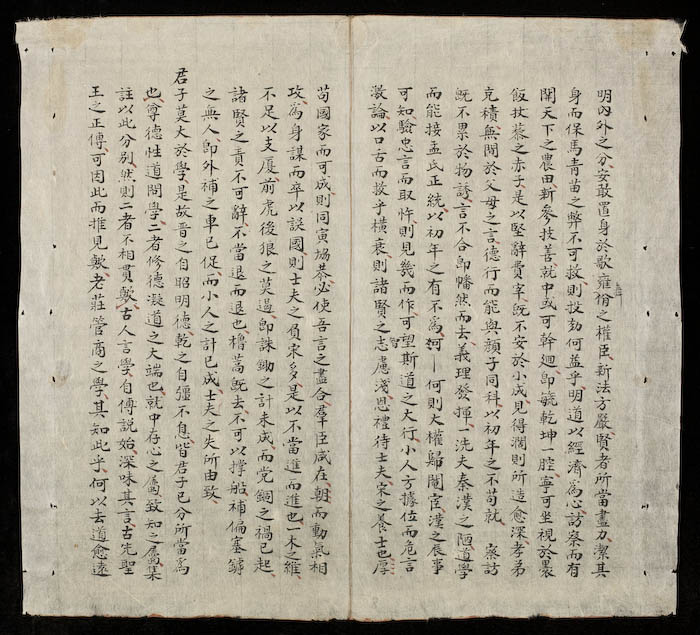 明內外之分安敢置身於歌雍僭之權臣新法方嚴賢者所當盡力潔其
身而保馬青苗之弊不可救則投劾何益乎明道以經濟為心訪察而有
閑天下之農田斯參扶善就中或可幹迴即毓乾坤一腔寧可坐視於褁
飯扶藜之赤子是以堅辭費宰既不安於小成見得濶則所造愈深孝弟
克積無間於父母之言德行而能與顏子同科以初年之不苟就　察訪
既不累於物誘言不合即幡然而去義理發揮一洗夫秦漢之陋道學
而能接孟氏正統以初年之有不為何則大權歸閹宦漢之辰事
可知驗忠言而取忤則見幾而作可望斯道之大行小人方據位而危言
激論以口舌而授乎橫衰則諸賢之志慮淺恩禮待士夫宋之養士也厚
苟國家而可成則同寅協恭必使吾言之盡合羣臣咸在朝而動氣相
攻為身謀而卒以誤國則士夫之負宋多是以不當進而進也一木之維
不足以支厦前虎後狼之莫遏即誅鋤之計未成而党錮之禍已起
諸賢之責不可辭不當退而退也檣蒿既去不可以撐船補偏塞鏬
之無人即外補之車已促而小人之計已成士夫之失所由致
君子莫大於學是故晋之自昭明德乾之自彊不息皆君子已分所當為
也尊德性道問學二者修德凝道之大端也就中存心之屬致知之屬集
註以此分别然則二者不相貫歟古人言學自傅說始深味其言古先聖
王之正傳可因此而推見歟老莊管商之學其知此乎何以去道愈遠